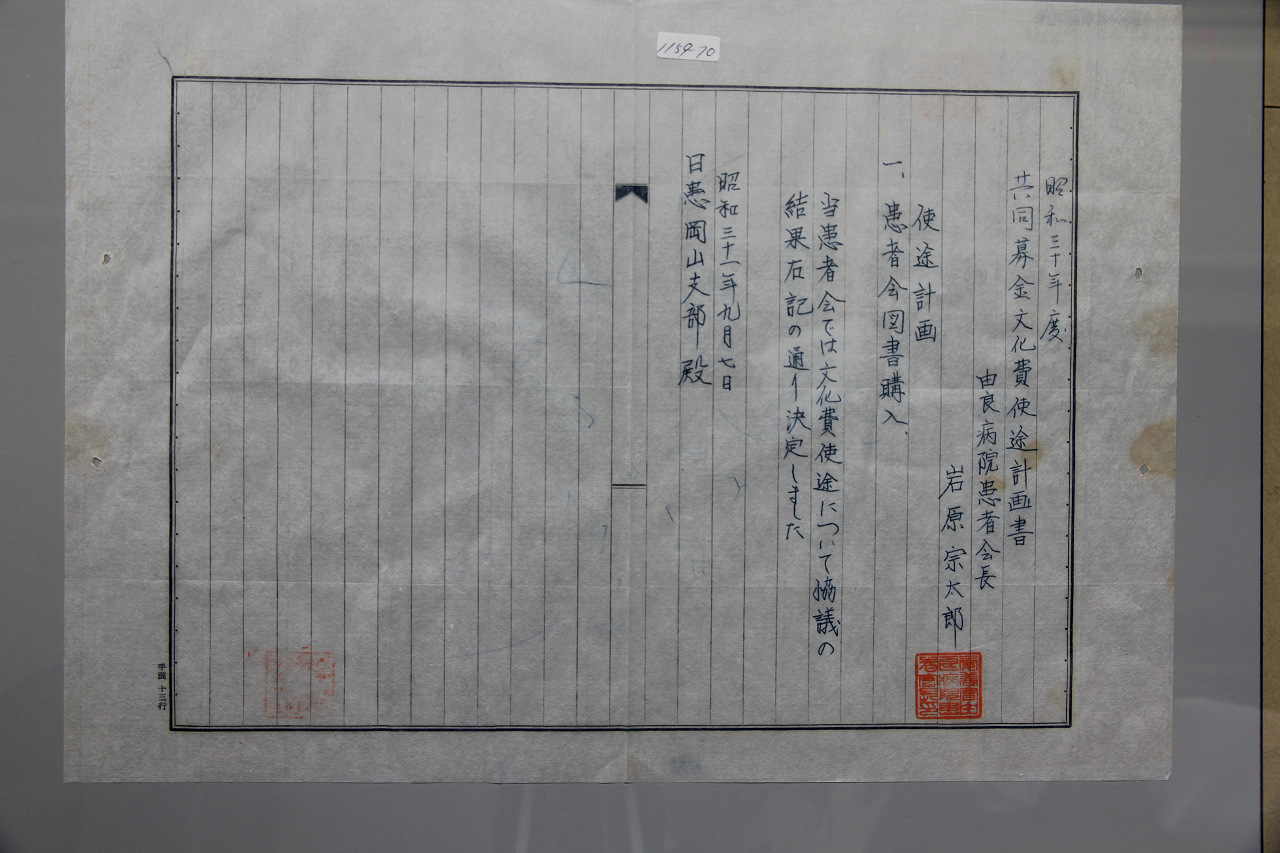 1154-70
昭和三十年度
共同募金文化費使途計画書
由良病院患者会長
岩原宗太郎
使途計画
一、患者会図書購入、
当患者会では文化費使途について協議の
結果右記の通り決定しました
昭和三十一年九月七日
日患岡山支部殿
十三行